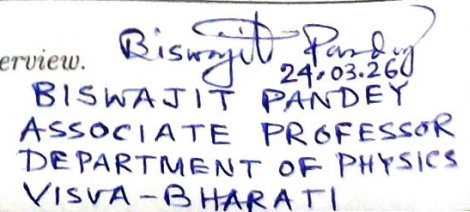 erview. Biswajit Pandey
24.03.26
BISWAJIT PANDEY
ASSOCIATE PROFESSOR
DEPARTMENT OF PHYSICS
VISVA-BHARATI